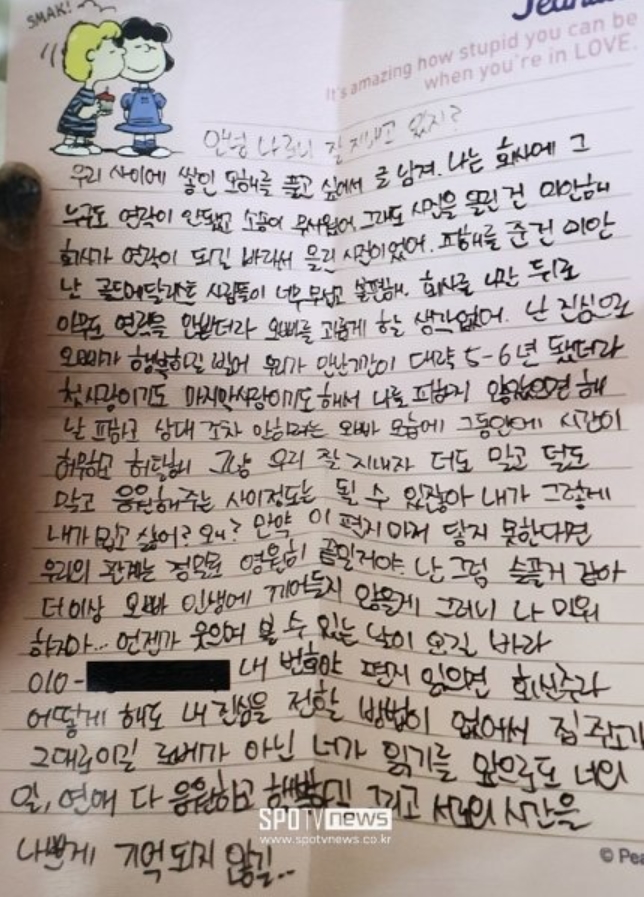 SMAK!
It's amazing how stupid you can be
when you're in LOVE.
안녕 나르니 잘 지내고 있지?
우리 사이에 쌓인 오해를 풀고 싶어서 글 남겨. 나는 회사에 그
누구도 연락이 안됐고 소송이 무서웠어 그래도 사진을 올린 건 미안해
회사가 연락이 되길 바라서 올린 사진이었어. 피해를 준건 미안
난 골드메달리스트 사람들이 너무 무섭고 불편해. 회사를 나간 뒤로
아무도 연락을 안받더라 오빠를 괴롭게 할 생각없어. 난 진심으로
오빠가 행복하길 빌어 우리가 만난기간이 대략 5-6년 됐더라
첫사랑이기도 마지막사랑이기도해서 나를 피하지 않았으면 해
날 피하고 상대 조차 안하려는 오빠 모습에 그동안에 시간이
허무하고 허탈해 그냥 우리 잘 지내자 더도 말고 덜도
말고 응원해주는 사이정도는 될 수 있잖아 내가 그렇게
내가 밉고 싫어? 왜? 만약 이 편지마저 닿지 못한다면
우리의 관계는 정말로 영원히 끝일거야. 난 그럼 슬플거 같아
더이상 오빠 인생에 끼어들지 않을게 그러니 나 미워
하지마... 언젠가 웃으며 볼 수 있는 날이 오길 바라
010- 내 번호야 편지 읽으면 회신주라
어떻게 해도 내 진심을 전할 방법이 없어서 집 주소가
그대로이길 로에가 아닌 너가 읽기를 앞으로도 너의
일, 연애 다 응원하고 행복하길 그리고 서로의 시간을
나쁘게 기억되지 않길...
SPOTVnews
www.spotvnews.co.kr